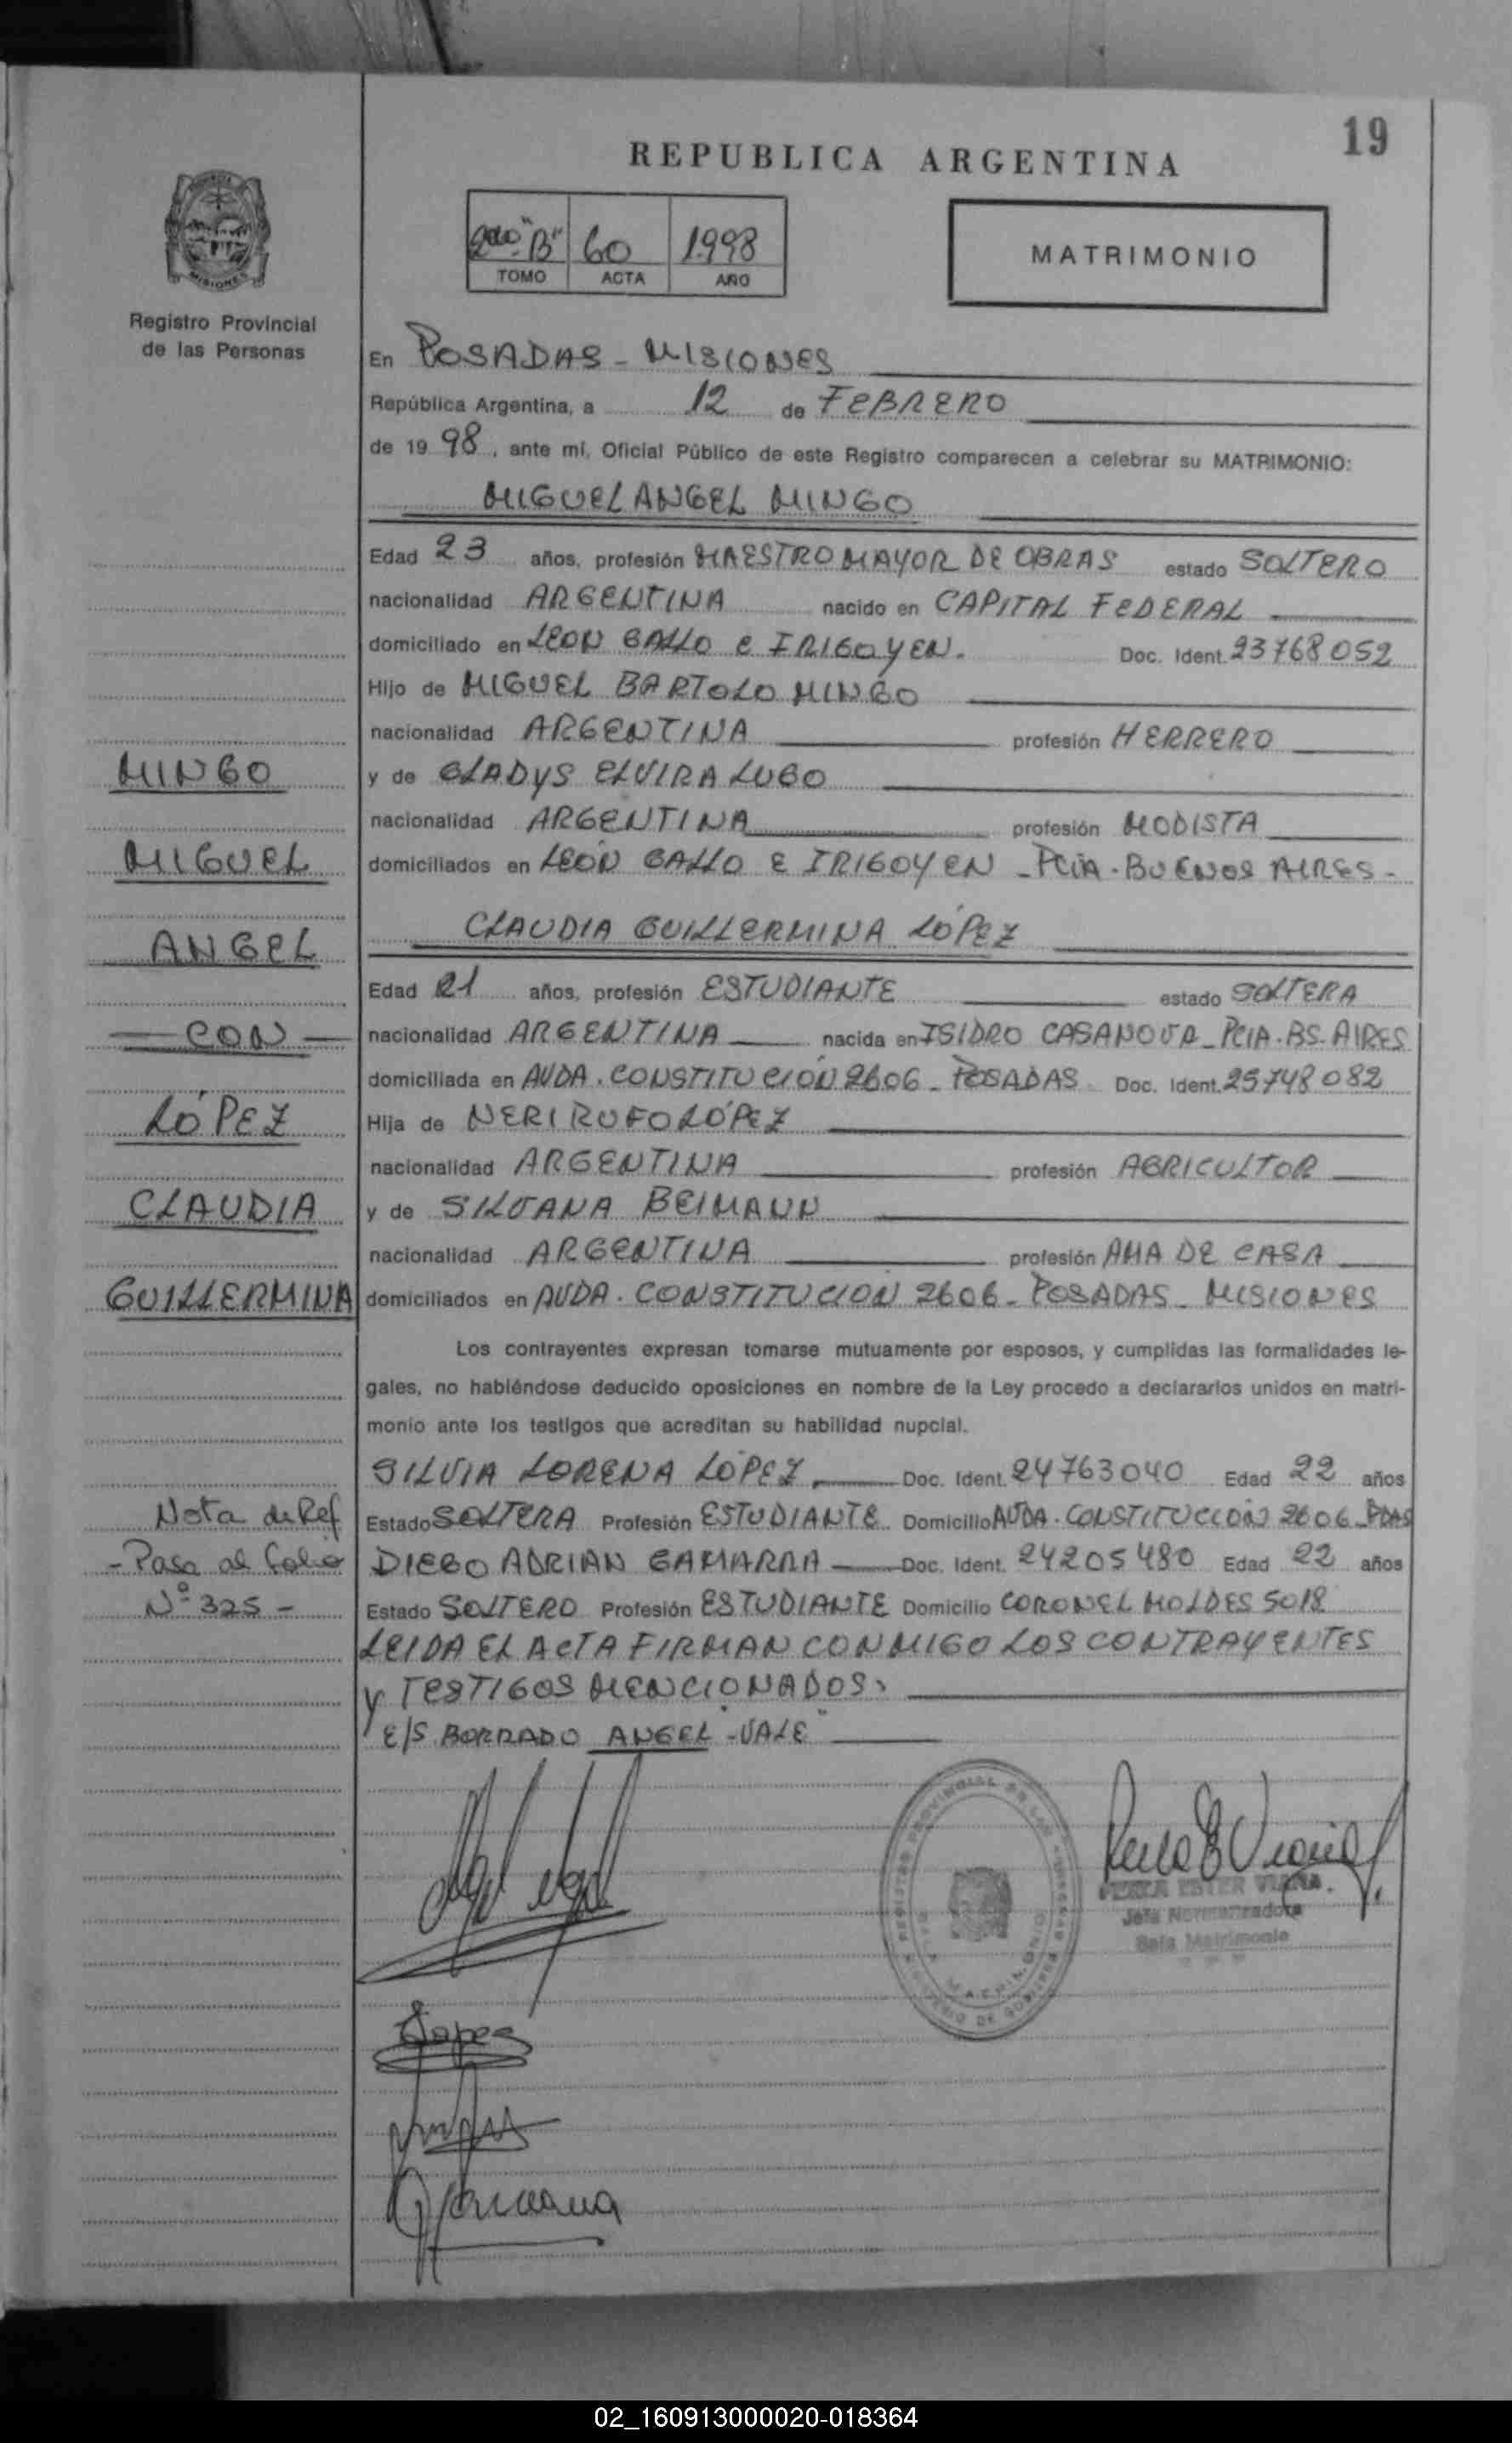 19
REPUBLICA ARGENTINA
2do "B" 60 1998
TOMO ACTA AÑO
MATRIMONIO
MISIONES
Registro Provincial
de las Personas
En POSADAS - MISIONES
República Argentina, a 12 de FEBRERO
de 19 98, ante mí, Oficial Público de este Registro comparecen a celebrar su MATRIMONIO:
MIGUEL ANGEL MINGO
Edad 23 años, profesión MAESTRO MAYOR DE OBRAS estado SOLTERO
nacionalidad ARGENTINA nacido en CAPITAL FEDERAL
domiciliado en LEON GALLO E IRIGOYEN. Doc. Ident. 23768052
Hijo de MIGUEL BARTOLO MINGO
nacionalidad ARGENTINA profesión HERRERO
y de GLADYS ELVIRA LUGO
nacionalidad ARGENTINA profesión MODISTA
domiciliados en LEÓN GALLO E IRIGOYEN - PCIA. BUENOS AIRES -
CLAUDIA GUILLERMINA LÓPEZ
Edad 21 años, profesión ESTUDIANTE estado SOLTERA
nacionalidad ARGENTINA nacida en ISIDRO CASANOVA - PCIA. BS. AIRES
domiciliada en AVDA. CONSTITUCIÓN 2606 - POSADAS Doc. Ident. 25748082
Hija de NERI RUFO LÓPEZ
nacionalidad ARGENTINA profesión AGRICULTOR
y de SILVANA BEIMANN
nacionalidad ARGENTINA profesión AMA DE CASA
domiciliados en AVDA. CONSTITUCION 2606 - POSADAS - MISIONES
MINGO
MIGUEL
ANGEL
CON
LÓPEZ
CLAUDIA
GUILLERMINA
Los contrayentes expresan tomarse mutuamente por esposos, y cumplidas las formalidades le-
gales, no habiéndose deducido oposiciones en nombre de la Ley procedo a declararlos unidos en matri-
monio ante los testigos que acreditan su habilidad nupcial.
SILVIA LORENA LÓPEZ Doc. Ident. 24763040 Edad 22 años
Estado SOLTERA Profesión ESTUDIANTE Domicilio AVDA. CONSTITUCIÓN 2606 - PDAS
DIEGO ADRIAN GAMARRA Doc. Ident. 24205480 Edad 22 años
Estado SOLTERO Profesión ESTUDIANTE Domicilio CORONEL MOLDES 5018
LEIDA EL ACTA FIRMAN CONMIGO LOS CONTRAYENTES
Y TESTIGOS MENCIONADOS.
E/S. BORRADO "ANGEL - VALE"
Nota de Ref
- Pasa al Folio
Nº 325 -
PERLA ESTER VIANA.
Jefa Normatizadora
Sala Matrimonio
Lopez
02_160913000020-018364